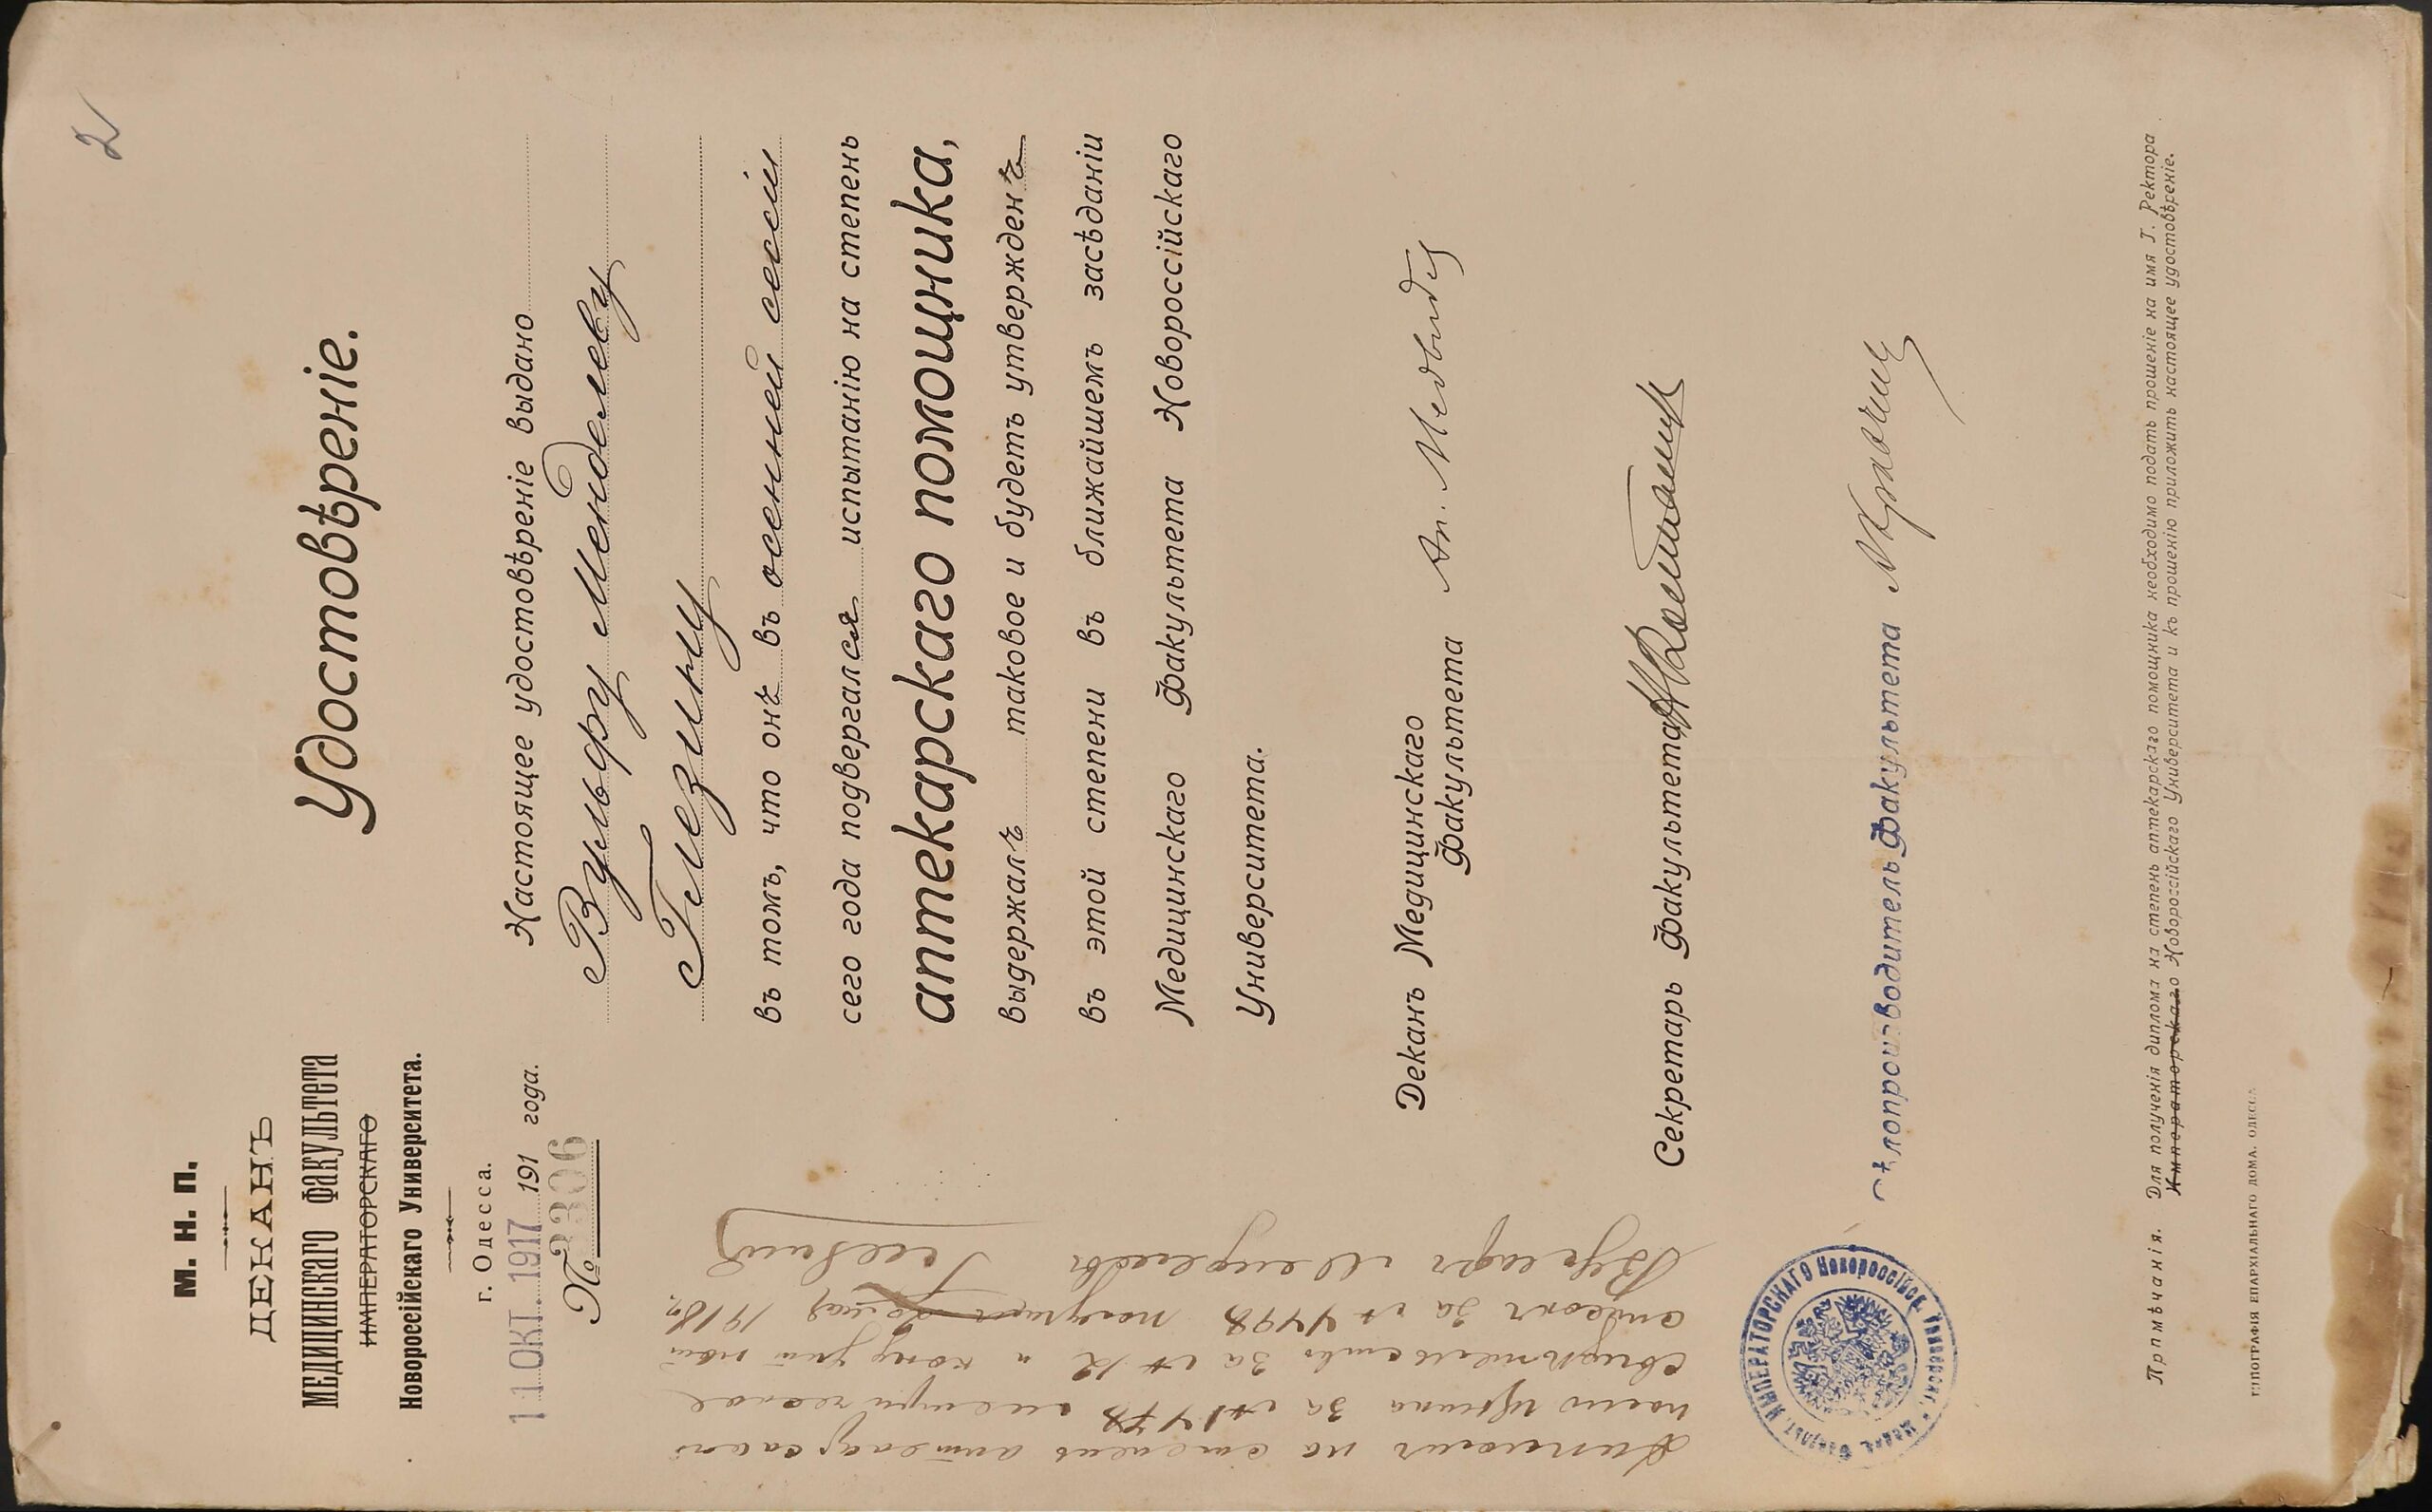 2
М. Н. П.
ДЕКАНЪ
МЕДИЦИНСКАГО ФАКУЛЬТЕТА
ИМПЕРАТОРСКАГО
Новороссійскаго Университета.
г. Одесса.
11 ОКТ. 1917 191 года.
№ 2306
Удостовѣреніе.
Настоящее удостовѣреніе выдано
Вульфу Менделеву
Глезину
въ томъ, что онъ въ осенней сессіи
сего года подвергался испытанію на степень
аптекарскаго помощника,
выдержалъ таковое и будетъ утвержденъ
въ этой степени въ ближайшемъ засѣданіи
Медицинскаго Факультета Новороссійскаго
Университета.
Деканъ Медицинскаго
Факультета
Секретарь Факультета
лопроизводитель Факультета
Дипломъ на степень аптекарскаго
за № 1478
свидѣтельство за № 12 и копу
за № 4498 получилъ 1918 г.
Вульфъ Менделевъ Глезинъ
Медиц. Факульт. ИМПЕРАТОРСКАГО Новороссійск. Университ.
Примѣчанія. Для полученія диплома на степень аптекарскаго помощника необходимо подать прошеніе на имя Г. Ректора
Императорскаго Новороссійскаго Университета и къ прошенію приложить настоящее удостовѣреніе.
ТИПОГРАФІЯ ЕПАРХІАЛЬНАГО ДОМА. ОДЕССА